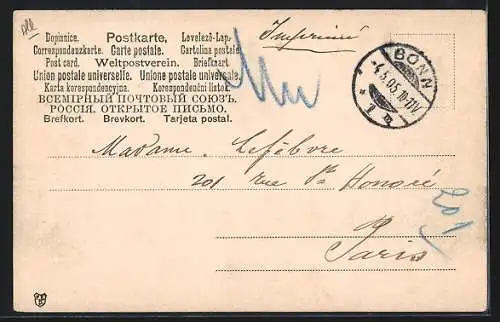 Dopisnice. Postkarte, Levelező-Lap.
Correspondenzkarte. Carte postale. Cartolina postale.
Post card. Weltpostverein. Briefkaart.
Union postale universelle. Unione postale universale.
Karta korespondencyjna. Korespondenční lístek.
ВСЕМІРНЫЙ ПОЧТОВЫЙ СОЮЗЪ.
РОССІЯ. ОТКРЫТОЕ ПИСЬМО.
Brefkort. Brevkort. Tarjeta postal.
Imprimé
BONN
4.5.05.10-11V.
Madame Lefébvre
201 rue St Honoré
Paris
201